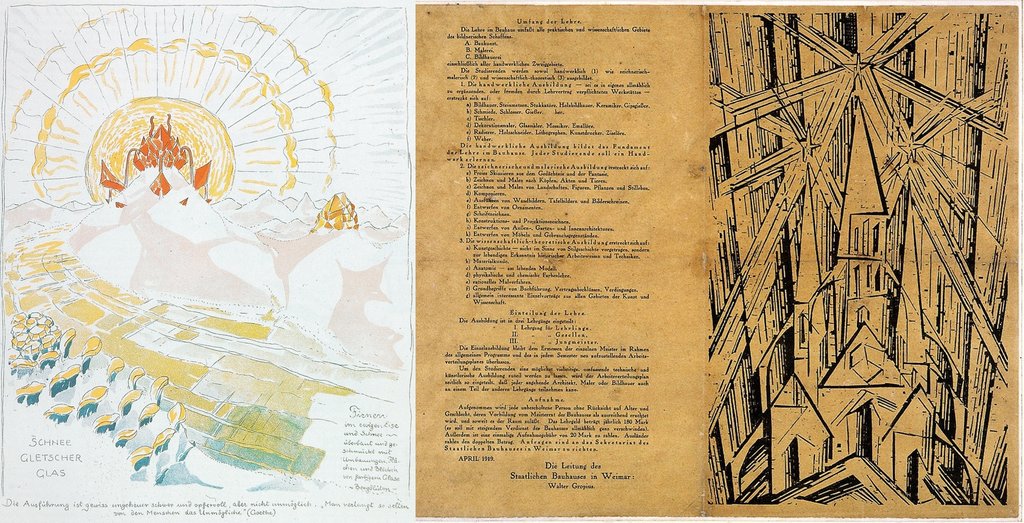 SCHNEE
GLETSCHER
GLAS
Firnen
im ewigen Eise
und Schnee –
überbaut und ge-
schmückt mit
Umbauungen, Flä-
chen und Blöcken
von farbigem Glase
– Bergblüten –
Die Ausführung ist gewiss ungeheuer schwer und opfervoll, aber nicht unmöglich. „Man verlangt so selten
von den Menschen das Unmögliche" (Goethe)
Umfang der Lehre.
Die Lehre im Bauhaus umfaßt alle praktischen und wissenschaftlichen Gebiete
des bildnerischen Schaffens.
A. Baukunst,
B. Malerei,
C. Bildhauerei
einschließlich aller handwerklichen Zweiggebiete.
Die Studierenden werden sowohl handwerklich (1) wie zeichnerisch-
malerisch (2) und wissenschaftlich-theoretisch (3) ausgebildet.
1. Die handwerkliche Ausbildung — sei es in eigenen allmählich
zu ergänzenden, oder fremden durch Lehrvertrag verpflichteten Werkstätten —
erstreckt sich auf:
a) Bildhauer, Steinmetzen, Stukkatöre, Holzbildhauer, Keramiker, Gipsgießer,
b) Schmiede, Schlosser, Gießer,
c) Tischler,
d) Dekorationsmaler, Glasmaler, Mosaiker, Emallöre,
e) Radierer, Holzschneider, Lithographen, Kunstdrucker, Ziselöre,
f) Weber.
Die handwerkliche Ausbildung bildet das Fundament
der Lehre im Bauhause. Jeder Studierende soll ein Hand-
werk erlernen.
2. Die zeichnerische und malerische Ausbildung erstreckt sich auf:
a) Freies Skizzieren aus dem Gedächtnis und der Fantasie,
b) Zeichnen und Malen nach Köpfen, Akten und Tieren,
c) Zeichnen und Malen von Landschaften, Figuren, Pflanzen und Stilleben,
d) Komponieren,
e) Ausführen von Wandbildern, Tafelbildern und Bilderschreinen,
f) Entwerfen von Ornamenten,
g) Schriftzeichnen,
h) Konstruktions- und Projektionszeichnen,
i) Entwerfen von Außen-, Garten- und Innenarchitekturen,
k) Entwerfen von Möbeln und Gebrauchsgegenständen.
3. Die wissenschaftlich-theoretische Ausbildung erstreckt sich auf:
a) Kunstgeschichte — nicht im Sinne von Stilgeschichte vorgetragen, sondern
zur lebendigen Erkenntnis historischer Arbeitsweisen und Techniken,
b) Materialkunde,
c) Anatomie — am lebenden Modell,
d) physikalische und chemische Farbenlehre,
e) rationelles Malverfahren,
f) Grundbegriffe von Buchführung, Vertragsabschlüssen, Verdingungen,
g) allgemein interessante Einzelvorträge aus allen Gebieten der Kunst und
Wissenschaft.
Einteilung der Lehre.
Die Ausbildung ist in drei Lehrgänge eingeteilt:
I. Lehrgang für Lehrlinge,
II. „ „ Gesellen,
III. „ „ Jungmeister.
Die Einzelausbildung bleibt dem Ermessen der einzelnen Meister im Rahmen
des allgemeinen Programms und des in jedem Semester neu aufzustellenden Arbeits-
verteilungsplanes überlassen.
Um den Studierenden eine möglichst vielseitige, umfassende technische und
künstlerische Ausbildung zuteil werden zu lassen, wird der Arbeitsverteilungsplan
zeitlich so eingeteilt, daß jeder angehende Architekt, Maler oder Bildhauer auch
an einem Teil der anderen Lehrgänge teilnehmen kann.
Aufnahme.
Aufgenommen wird jede unbescholtene Person ohne Rücksicht auf Alter und
Geschlecht, deren Vorbildung vom Meisterrat des Bauhauses als ausreichend erachtet
wird, und soweit es der Raum zuläßt. Das Lehrgeld beträgt jährlich 180 Mark
(es soll mit steigendem Verdienst des Bauhauses allmählich ganz verschwinden).
Außerdem ist eine einmalige Aufnahmegebühr von 20 Mark zu zahlen. Ausländer
zahlen den doppelten Betrag. Anfragen sind an das Sekretariat des
Staatlichen Bauhauses in Weimar zu richten.
APRIL 1919.
Die Leitung des
Staatlichen Bauhauses in Weimar:
Walter Gropius.